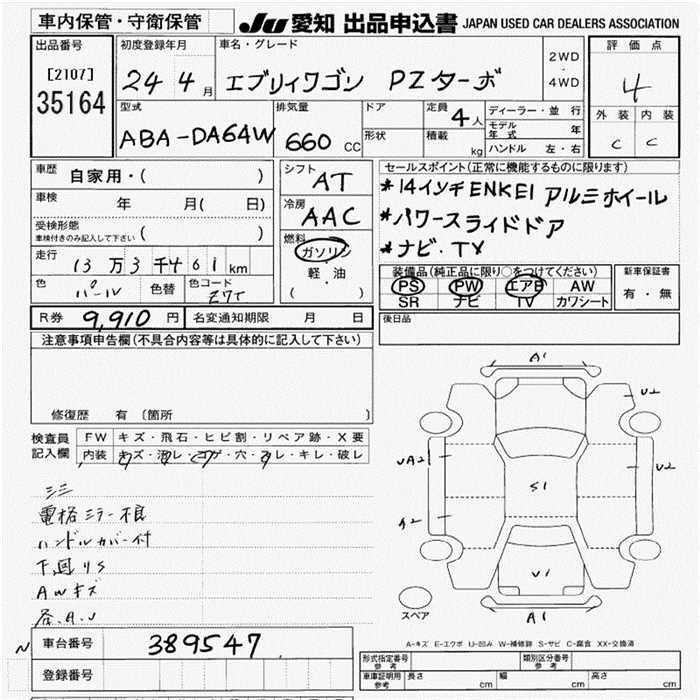 車内保管・守衛保管
JU 愛知 出品申込書 JAPAN USED CAR DEALERS ASSOCIATION
出品番号
[2107]
35164
初度登録年月
24 4月
車名・グレード
エブリィワゴン PZターボ
2WD
・
4WD
評価点
4
外装 内装
C C
型式
ABA-DA64W
排気量
660 CC
ドア
形状
定員
4人
積載 kg
ディーラー・並行
モデル年式 年
ハンドル 左・右
車歴
自家用・( )
車検 年 月( 日)
受検形態
車検付きのみ記入して下さい ( )
走行
13万3千461km
色
パール
色替
色コード
Z7T
シフト
AT
冷房
AAC
燃料
ガソリン
・
軽・油
( )
セールスポイント(正常に機能するものに限ります)
*14インチENKEI アルミホイール
*パワースライドドア
*ナビ・TV
装備品(純正品に限り○をつけてください)
PS PW エアB AW
SR ナビ TV カワシート
新車保証書
有・無
R券 9,910円 名変通知期限 月 日
後日品
注意事項申告欄(不具合内容等は具体的に記入して下さい)
修復歴 有 〔箇所 〕
検査員
記入欄
FW キズ・飛石・ヒビ割・リペア跡・X要
内装 キズ・汚レ・コゲ・穴・スレ・キレ・破レ
シミ
電格ミラー不良
ハンドルカバー付
下回りS
AWキズ
A1
U2
UA2
U2
A2
S1
U1
A1
スペア
A-キズ E-エクボ U-凹み W-補修跡 S-サビ C-腐食 XX-交換済
車台番号 389547
登録番号
形式指定番号
参考
類別区分番号
参考
車庫証明用
参考
長さ cm 幅 cm 高さ cm